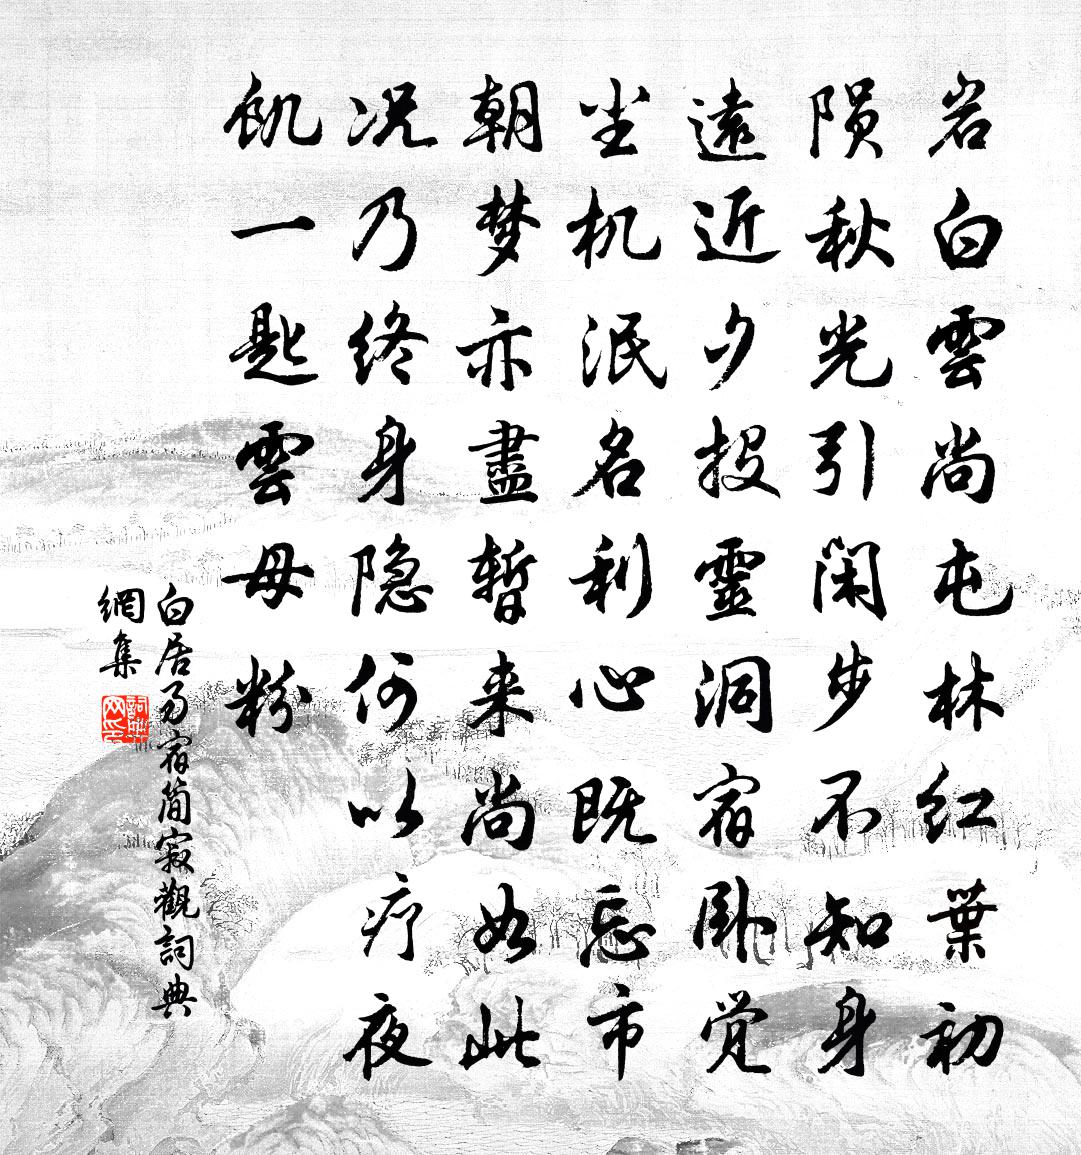 岩白雲尚屯林红葉初
陨秋光引闲步不知身
遠近夕投靈洞宿卧觉
尘机泯名利心既忘市
朝梦亦盡暫来尚如此
况乃终身隐何以疗夜
飢一匙雲母粉
白居易宿简寂觀詞典
網集